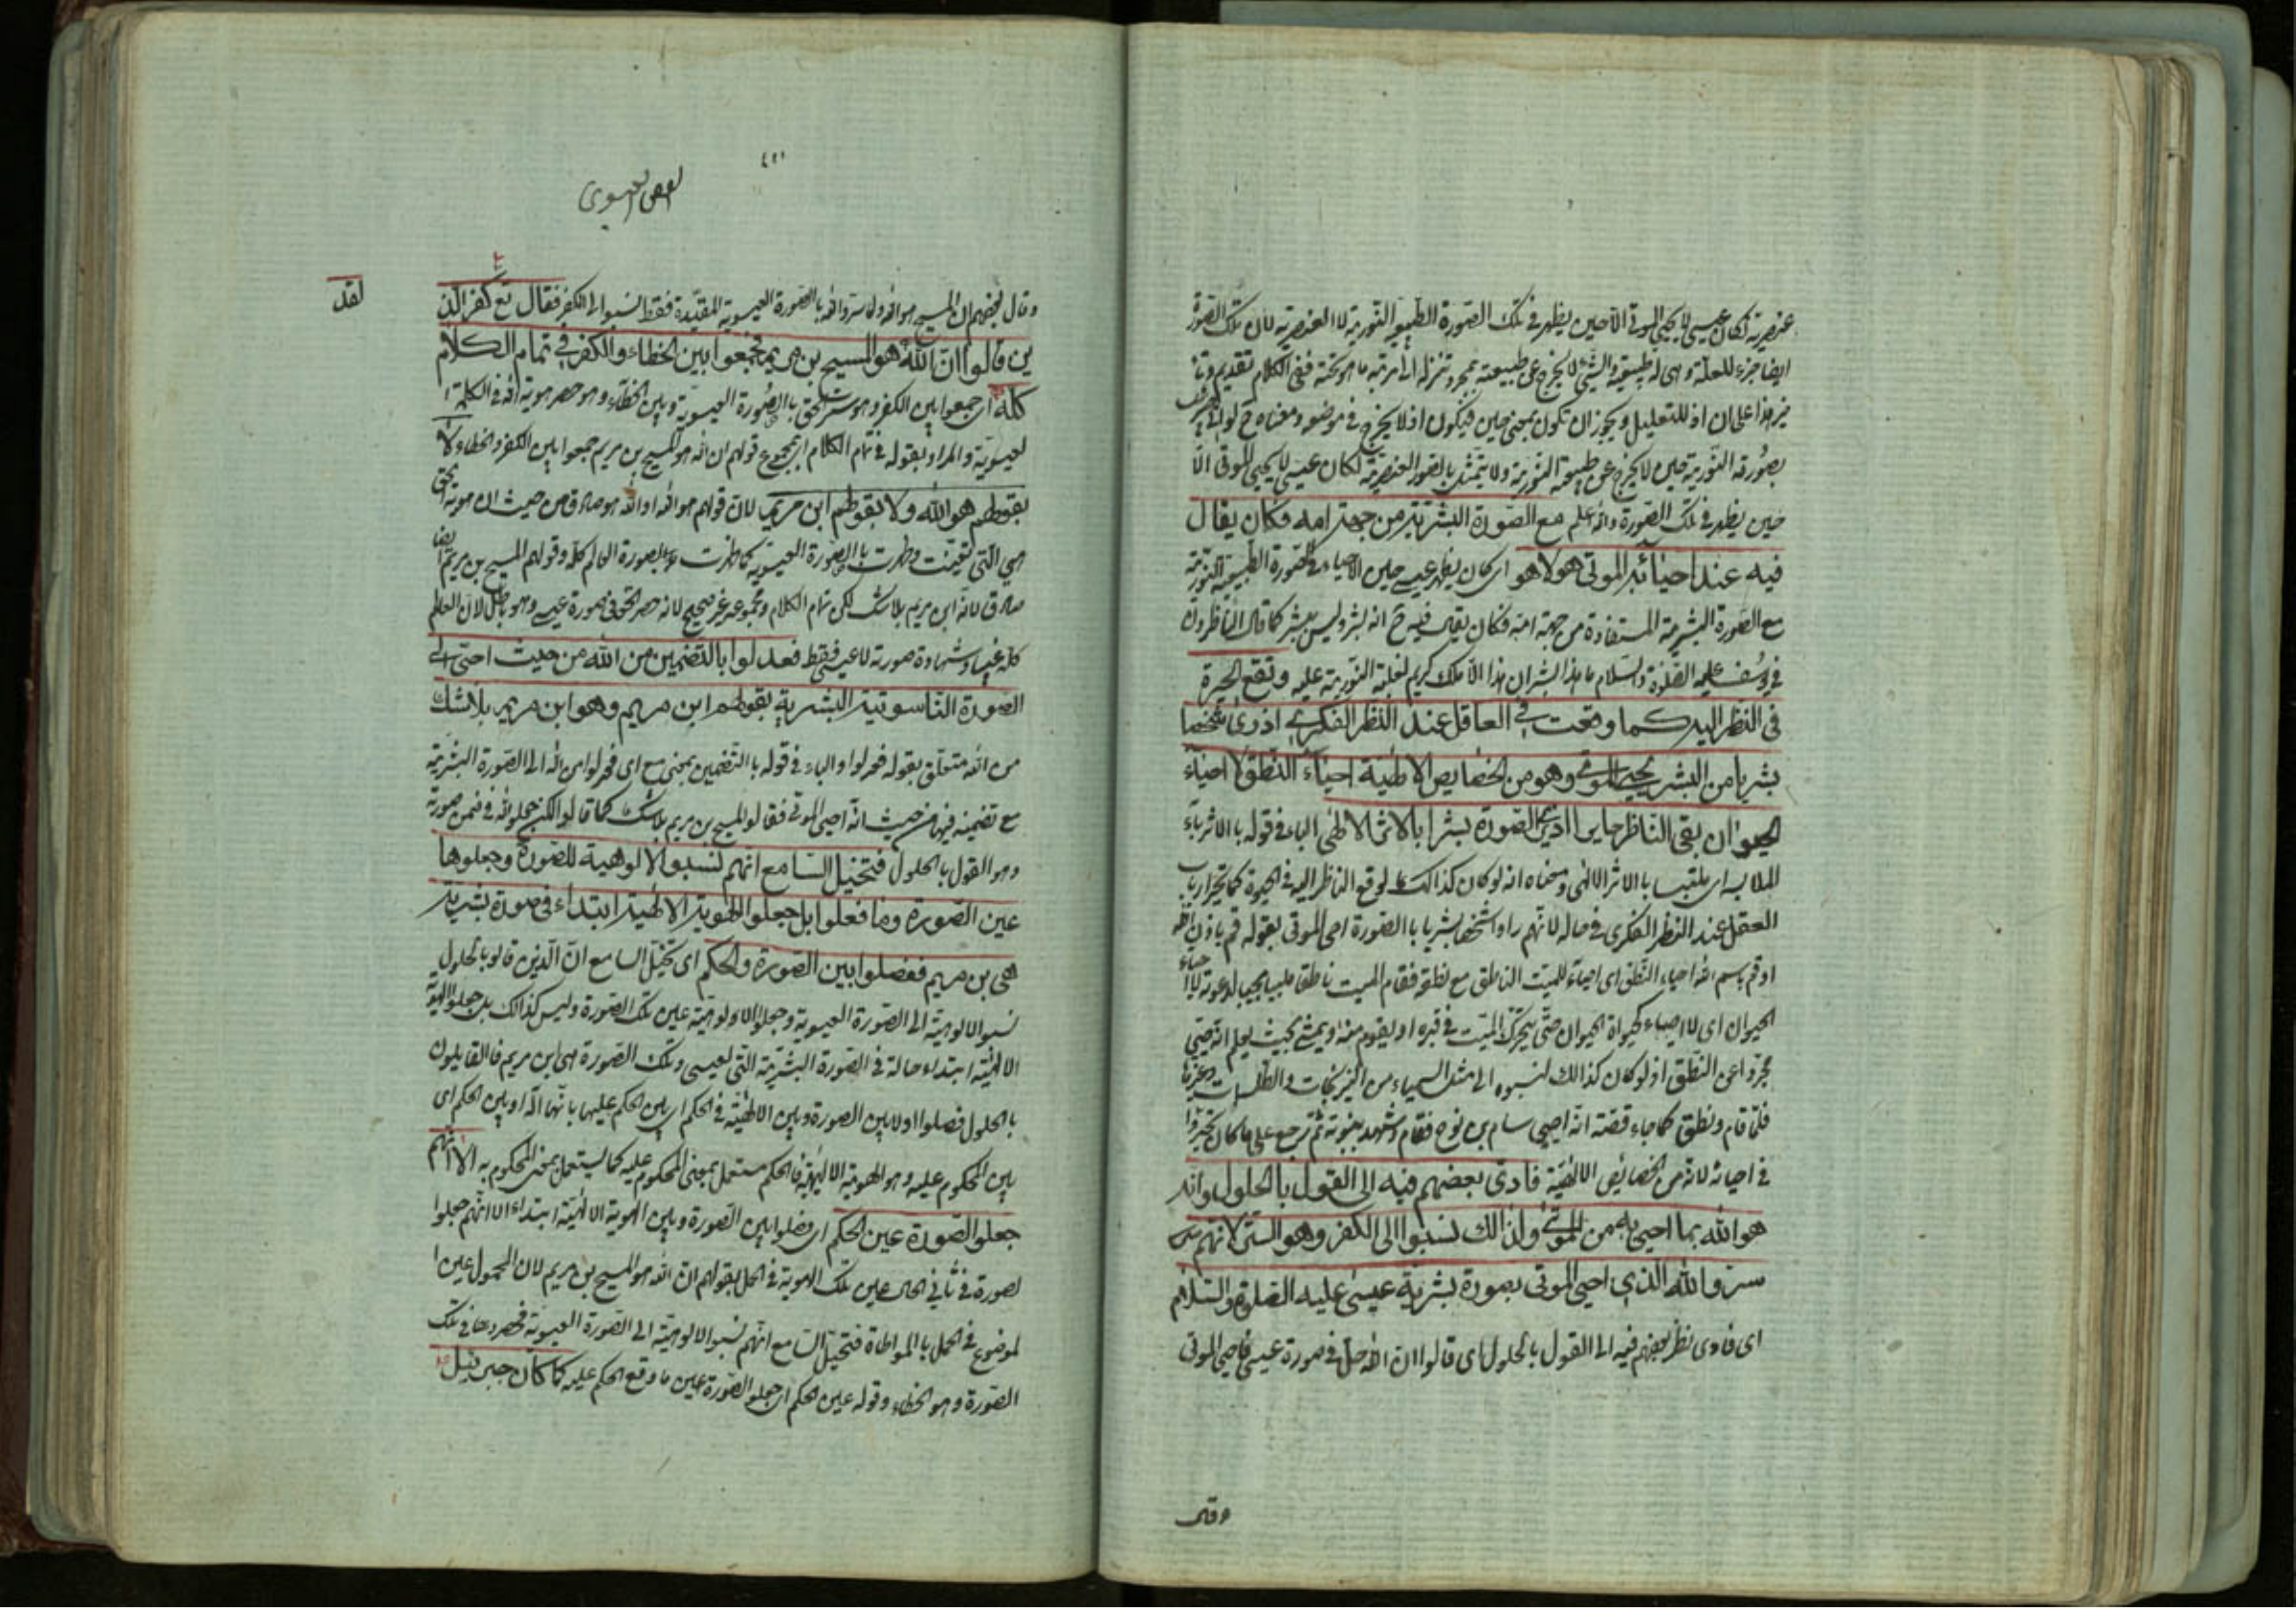 عنصرية لكان عيسى لا يحيى الموتى الا حين يظهر في تلك الصورة الطبيعية النورية لا العنصرية لان تلك الصورة
ايضا جزء للعلة وهى له طبيعية والشئ لا يخرج عن طبيعته بمجرد تنزله الى مرتبة ما هو تحته ففى الكلام تقديم وتا
خير هذا على ان اذ للتعليل ويجوز ان تكون بمعنى حين فيكون اذ لا يخرج في موضعه ومعناه ح لو اتى
بصورته النورية حين لا يخرج عن طبيعته النورية ولا يتمثل بالصور العنصرية لكان عيسى لا يحيى الموتى الا
حين يظهر في تلك الصورة والله اعلم مع الصورة البشرية من جهة امه فكان يقال
فيه عند احيائه الموتى هو لا هو اى كان يظهر عيسى حين الاحياء في الصورة الطبيعية النورية
مع الصورة البشرية المستفادة من جهة امه فكان يقال فيه ح انه بشر وليس ببشر كما قال الناظرون
في يوسف عليه الصلوة والسلام ما هذا بشرا ان هذا الا ملك كريم لغلبة النورية عليه وتقع الحيرة
في النظر اليه كما وقعت في العاقل عند النظر الفكرى اذ رأى شخصا
بشريا من البشر يحيى الموتى وهو من الخصايص الالهية احياء النطق لا احياء
الحيوان بقى الناظر حايرا اذ يرى الصورة بشرا بالاثر الالهى الباء في قوله بالاثر باء
الملابسه اى ملتبسا بالاثر الالهى ومعناه انه لو كان كذالك لوقع الناظر اليه في الحيرة كما تحير ارباب
العقل عند النظر الفكرى في حاله لانهم راوا شخصا بشريا بالصورة احى الموتى بقوله قم باذن الله
او قم بسم الله احياء النطق اى احياء للميت الناطق مع نطقه فقام الميت ناطقا ملبيا مجيبا لدعوته لا احياء
الحيوان اى لا احياء كحيواة الحيوان حتى يتحرك الميت في قبره او يقوم منه او يمشى بحيث يعلم انه حيى
مجردا عن النطق اذ لو كان كذالك لنسبوه الى مثل السيمياء من النيرنجات والطلسمات وغيرها
فلما قام ونطق كما جاء قصته انه احيى سام بن نوح فقام وشهد بنبوته ثم رجع على ما كان تحيروا
في احيائه لانه من الخصائص الالهية فادى بعضهم فيه الى القول بالحلول وانه
هو الله بما احيى به من الموتى ولذالك نسبوا الى الكفر وهو الستر لانهم
ستروا الله الذى احيى الموتى بصورة بشرية عيسى عليه الصلوة والسلام
اى فادى نظر بعضهم فيه الى القول بالحلول اى قالوا ان الله حل في صورة عيسى فاحيى الموتى
وقال
٤٢١
الفص العيسوى
لقد
وقال بعضهم ان المسيح هو الله ولما ستروا الله بالصورة العيسوية المقيدة فقط نسبوا الى الكفر فقال تع كفر الذ
ين قالوا ان الله هو المسيح بن مريم فجمعوا بين الخطاء والكفر في تمام الكلام
كله اى جمعوا بين الكفر وهو ستر الحق بالصورة العيسوية وبين الخطاء وهو حصر هوية الله في الكلمة ا
لعيسوية والمراد بقوله في تمام الكلام اى مجموع قولهم ان الله هو المسيح بن مريم جمعوا بين الكفر والخطاء لا
بقولهم هو الله ولا بقولهم ابن مريم لان قولهم هو الله او الله هو صادق من حيث ان هوية الحق
هى التى تعينت وظهرت بالصورة العيسوية كما ظهرت بصورة العالم كله وقولهم المسيح بن مريم ايضا
صادق لانه ابن مريم بلا شك لكن تمام الكلام ومجموعه غير صحيح لانه حصر الحق في صورة عيسى وهو باطل لان العالم
كله غيبا وشهادة صورته لا عيسى فقط فعدلوا بالتضمين من الله من حيث احيى الموتى الى
الصورة الناسوتية البشرية بقولهم ابن مريم وهو ابن مريم بلا شك
من الله متعلق بقوله فعدلوا والباء في قوله بالتضمين بمعنى مع اى فعدلوا من الله الى الصورة البشرية
مع تضمينه فيها من حيث انه احيى الموتى فقالوا المسيح بن مريم بلا شك كما قالوا لكن جعلوا الله في ضمن صورته
وهو القول بالحلول فتخيل السامع انهم نسبوا الالوهية للصورة وجعلوها
عين الصورة وما فعلوا بل جعلوا الهوية الالهية ابتداء في صورة بشرية
هى بن مريم ففصلوا بين الصورة والحكم اى تخيل السامع ان الذين قالوا بالحلول
نسبوا الالوهية الى الصورة العيسوية وجعلوا الالوهية عين تلك الصورة وليس كذالك بل جعلوا الهوية
الالهية ابتداء حالة في الصورة البشرية التى لعيسى وتلك الصورة هى ابن مريم فالقايلون
بالحلول فصلوا اولا بين الصورة وبين الالهية في الحكم اى بين الحكم عليها بانها اله او بين الحكم اى
بين المحكوم عليه وهو الهوية الالهية فالحكم مستعمل بمعنى المحكوم عليه كما يستعمل بمعنى المحكوم به الا انهم
جعلوا الصورة عين الحكم اى فصلوا بين الصورة وبين الهوية الالهية ابتداء الا انهم جعلوا
لصورة في ثانى الحال عين تلك الهوية في الحمل بقولهم ان الله هو المسيح بن مريم لان المحمول عين ا
لموضوع في الحمل بالمواطاة فتخيل السامع انهم نسبوا الالوهية الى الصورة العيسوية فحصروها في تلك
الصورة وهو الخطاء وقوله عين الحكم اى جعلوا الصورة عين ما وقع الحكم عليه كما كان جبرئيل